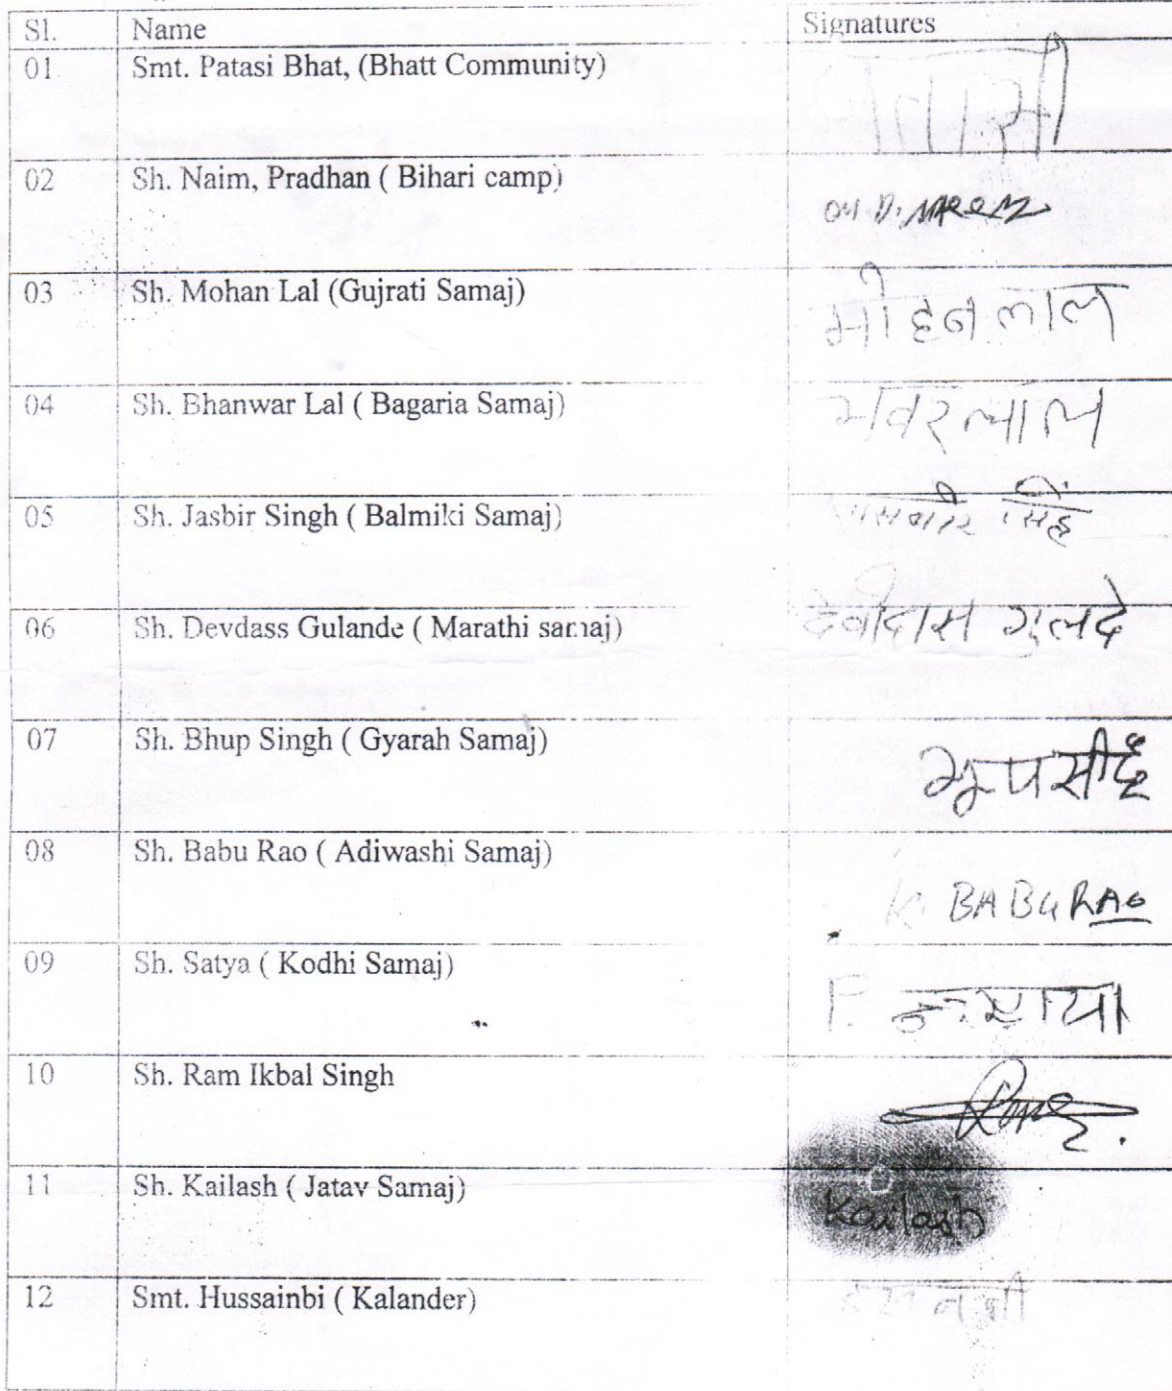 Sl. Name Signatures
01 Smt. Patasi Bhat, (Bhatt Community) पतासी
02 Sh. Naim, Pradhan ( Bihari camp)
03 Sh. Mohan Lal (Gujrati Samaj) मोहन लाल
04 Sh. Bhanwar Lal ( Bagaria Samaj) भवरलाल
05 Sh. Jasbir Singh ( Balmiki Samaj) सिंह
06 Sh. Devdass Gulande ( Marathi samaj) देवीदास गुलदे
07 Sh. Bhup Singh ( Gyarah Samaj) भूपसीह
08 Sh. Babu Rao ( Adiwashi Samaj) K BABU RAO
09 Sh. Satya ( Kodhi Samaj)
10 Sh. Ram Ikbal Singh
11 Sh. Kailash ( Jatav Samaj) Kailash
12 Smt. Hussainbi ( Kalander)